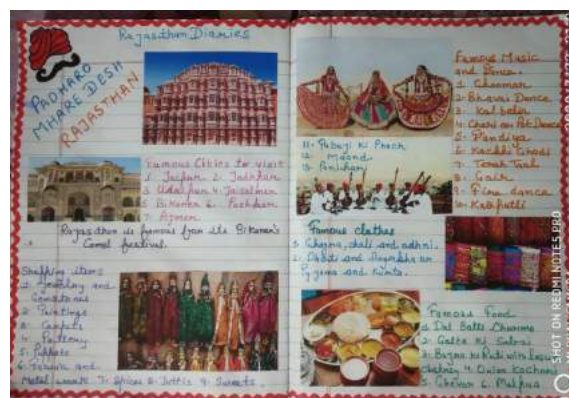 Rajasthan Diaries
PADHARO
MHARE DESH
RAJASTHAN
Famous Cities to visit
1. Jaipur 2. Jodhpur
3 Udaipur 4. Jaisalmer
5 Bikaner 6. Pushkar
7. Ajmer
Rajasthan is famous from its Bikaner's
Camel festival.
Shopping items
1. Jewelry and
Gemstones
2 Paintings
3. Carpets
4. Pottery
5. Puppets
6. and
Metal work 7. Spices 8. Juttis 9. Sweets.
Famous Music
and Dance.
1. Ghoomar
2. Bhavai Dance
3. Kalbelia
4. Chari or Pot Dance
5.
6. Kachhi Ghodi
7. Terah Taal
8. Gair
9. Fire dance
10. Kathputli
11. Pabuji Ki Phach
12. Maand
13. Panihari
Famous clothes
1. Ghagra, choli and odhni.
2. Dhoti and Angrakha or
Pyjama and Kurta.
Famous Food
1. Dal Batti Churma
2. Gatte Ki Sabzi
3. Bajra Ki Roti with Lasun
chutney 4. Onion Kachori
5. Ghevar 6. Malpua
SHOT ON REDMI NOTE5 PRO